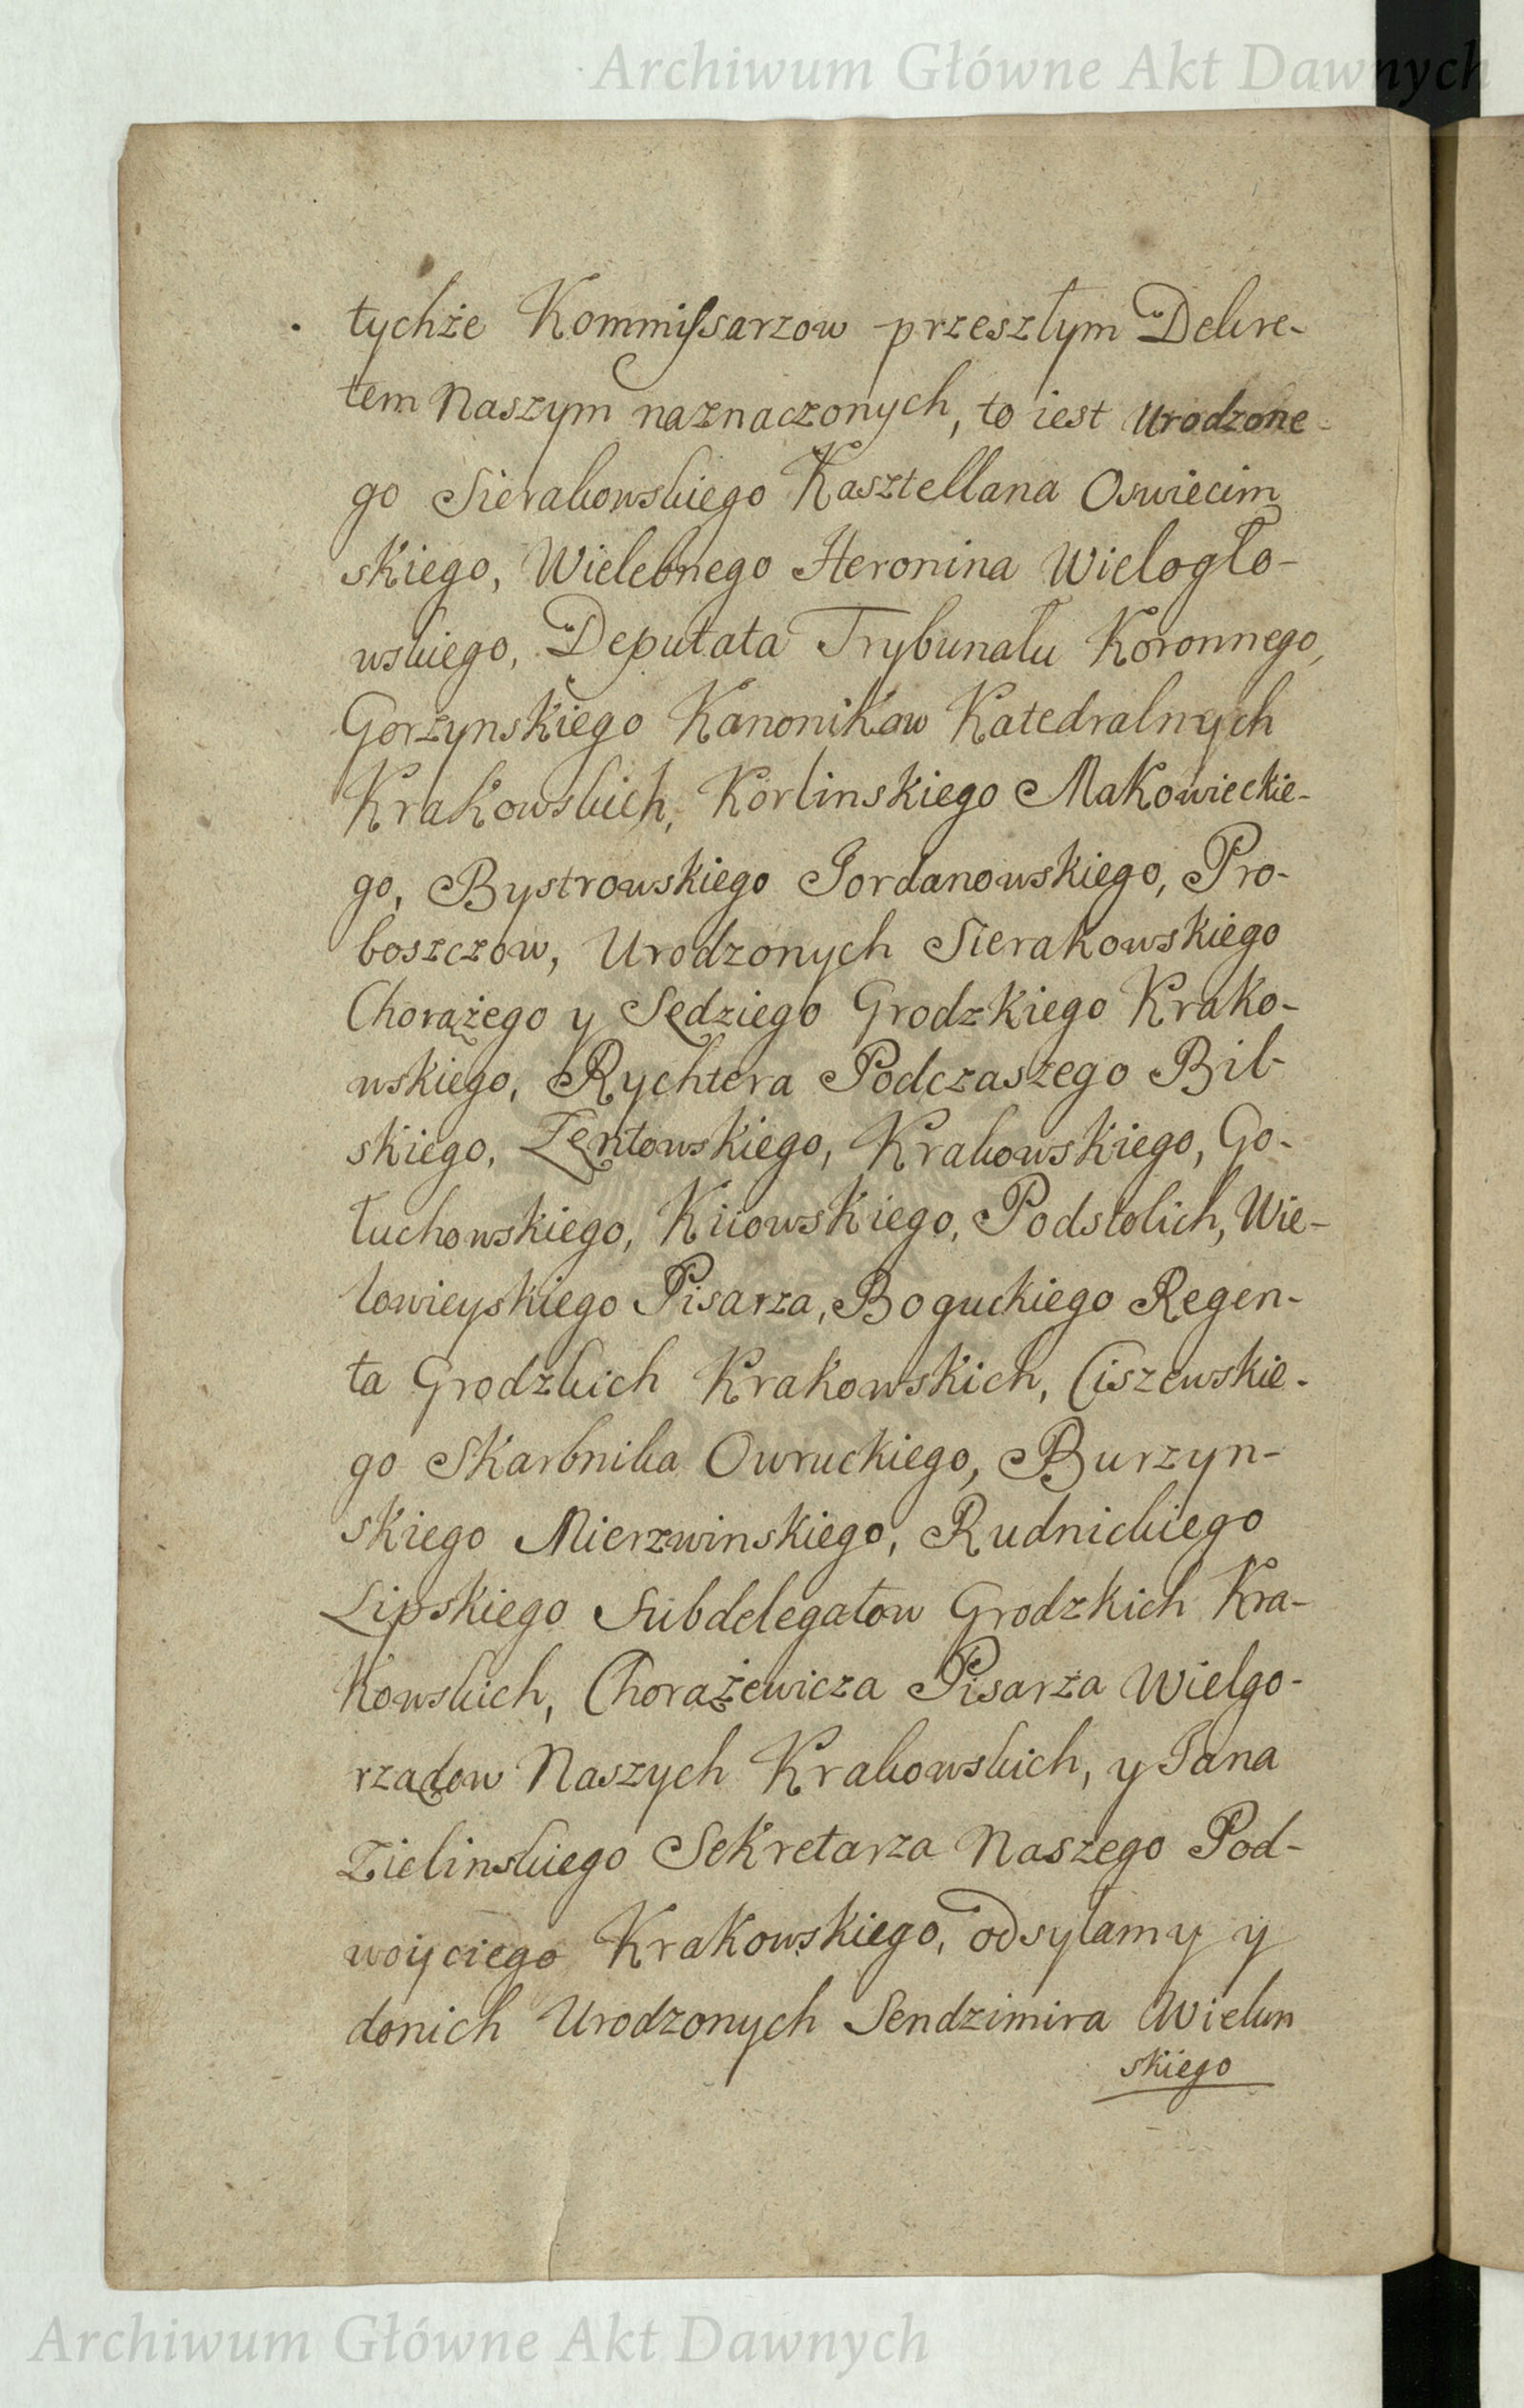 Archiwum Główne Akt Dawnych
tychże Kommissarzow przeszłym Dekre-
tem Naszym naznaczonych, to iest Urodzone-
go Sierakowskiego Kasztellana Oswiecim
skiego, Wielebnego Heronina Wielogło-
wskiego, Deputata Trybunału Koronnego,
Gorzynskiego Kanonikow Katedralnych
Krakowskich, Korlinskiego Makowieckie-
go, Bystrowskiego Jordanowskiego, Pro-
boszczow, Urodzonych Sierakowskiego
Chorążego y Sędziego Grodzkiego Krako-
wskiego, Rychtera Podczaszego Bil-
skiego, Zętowskiego, Krakowskiego, Go-
łuchowskiego, Kiiowskiego, Podstolich, Wie-
lowieyskiego Pisarza, Boguckiego Regen-
ta Grodzkich Krakowskich, Ciszewskie-
go Skarbnika Owruckiego, Burzyn-
skiego Mierzwinskiego, Rudnickiego
Lipskiego Subdelegatow Grodzkich Kra-
kowskich, Chorążewicza Pisarza Wielgo-
rządow Naszych Krakowskich, y Jana
Zielinskiego Sekretarza Naszego Pod-
woyciego Krakowskiego, odsyłamy y
donich Urodzonych Sendzimira Wielun
skiego
Archiwum Główne Akt Dawnych